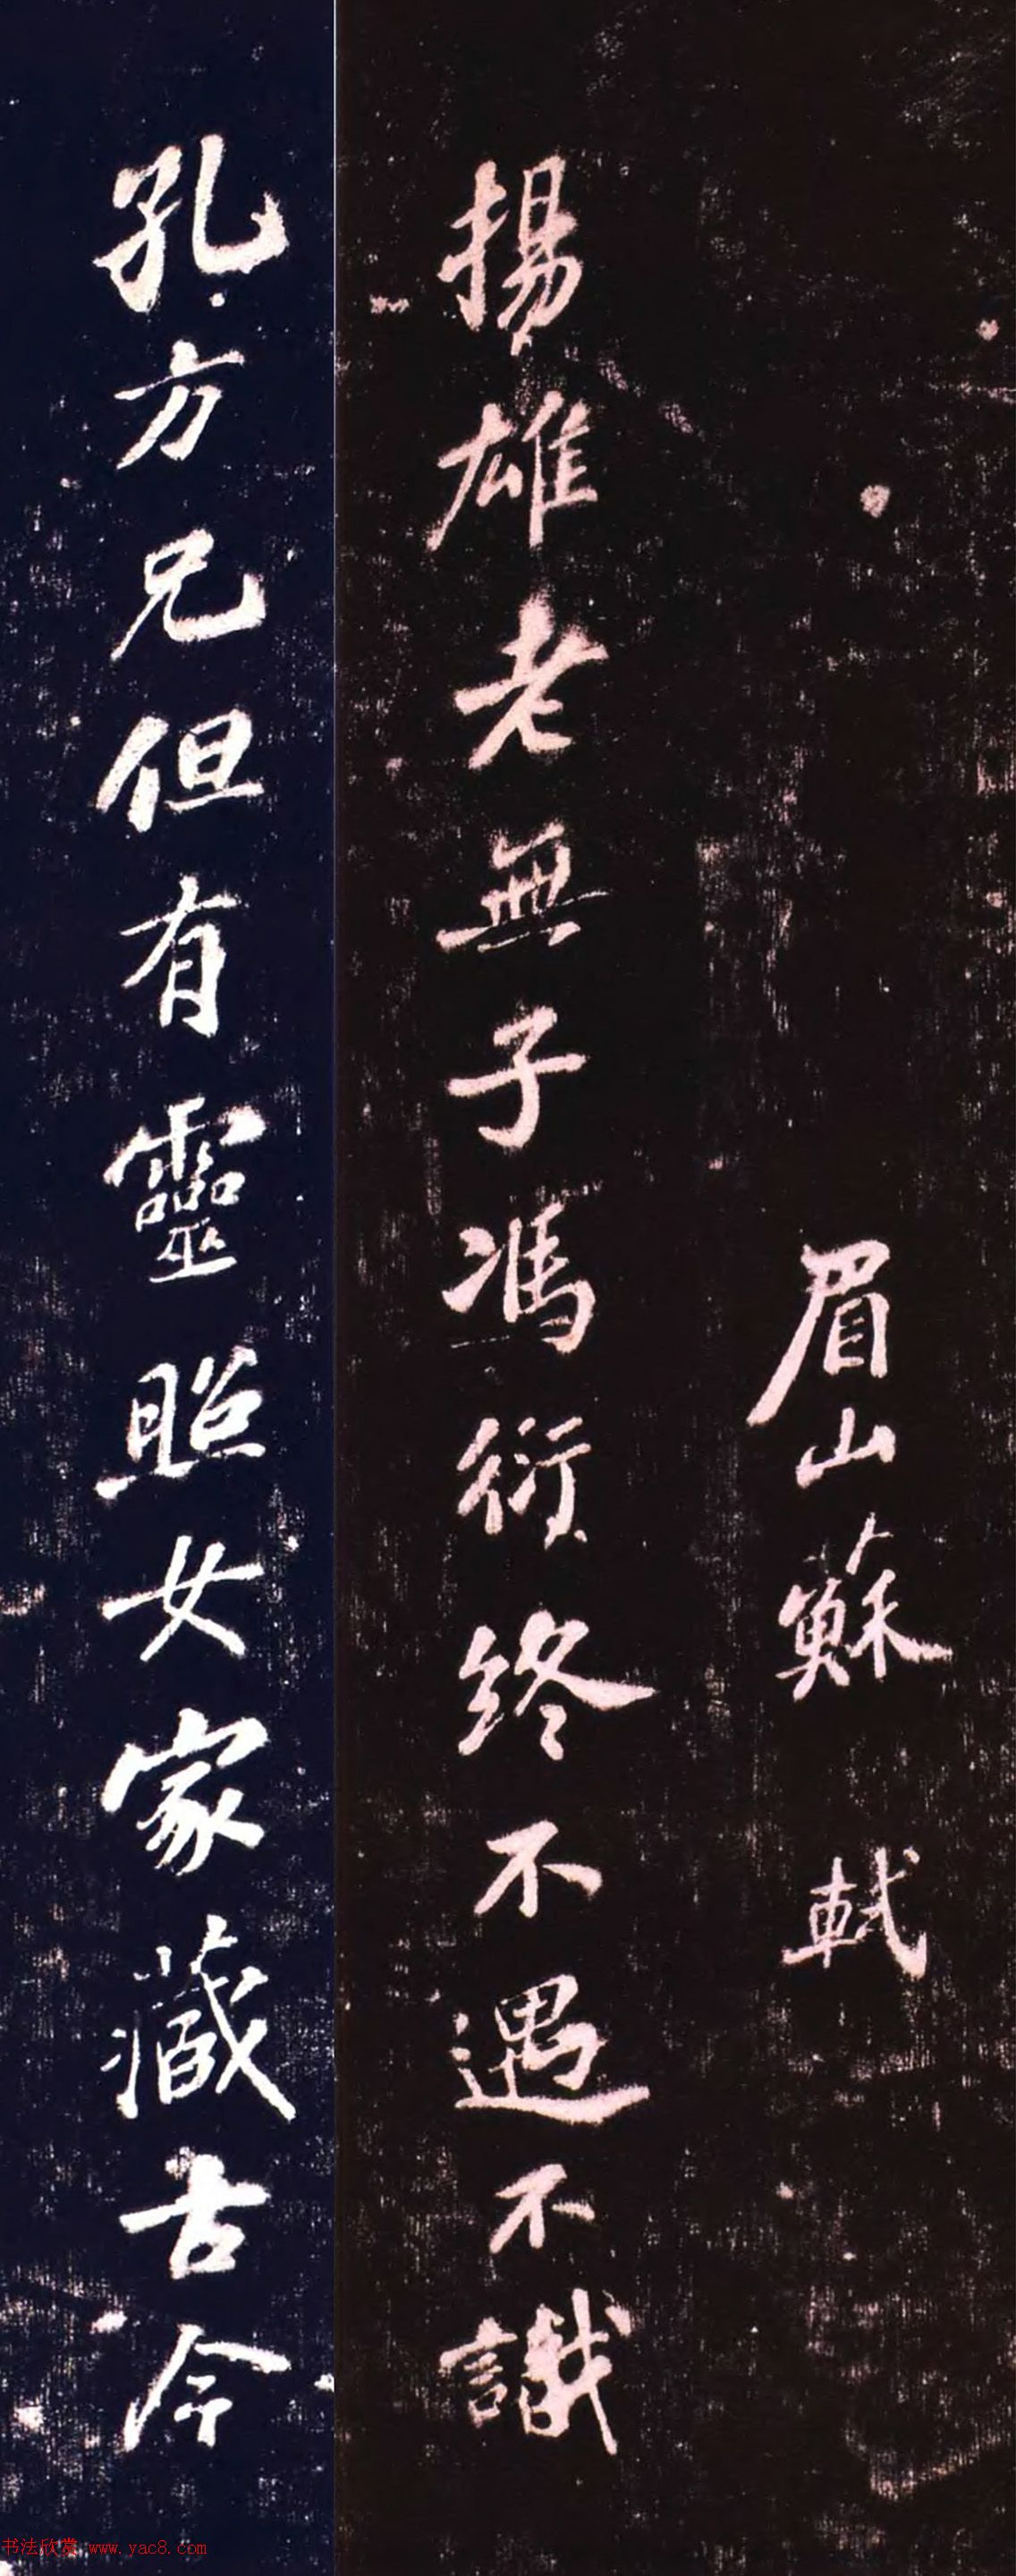 眉山蘇軾
揚雄老無子馮衍終不遇不識
孔方兄但有靈照女家藏古今
书法欣赏 www.yac8.com